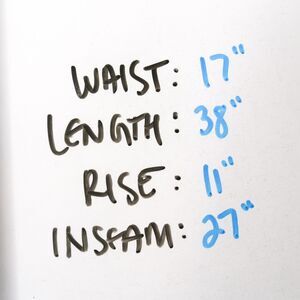 WAIST: 17"
LENGTH: 38"
RISE: 11"
INSEAM: 27"